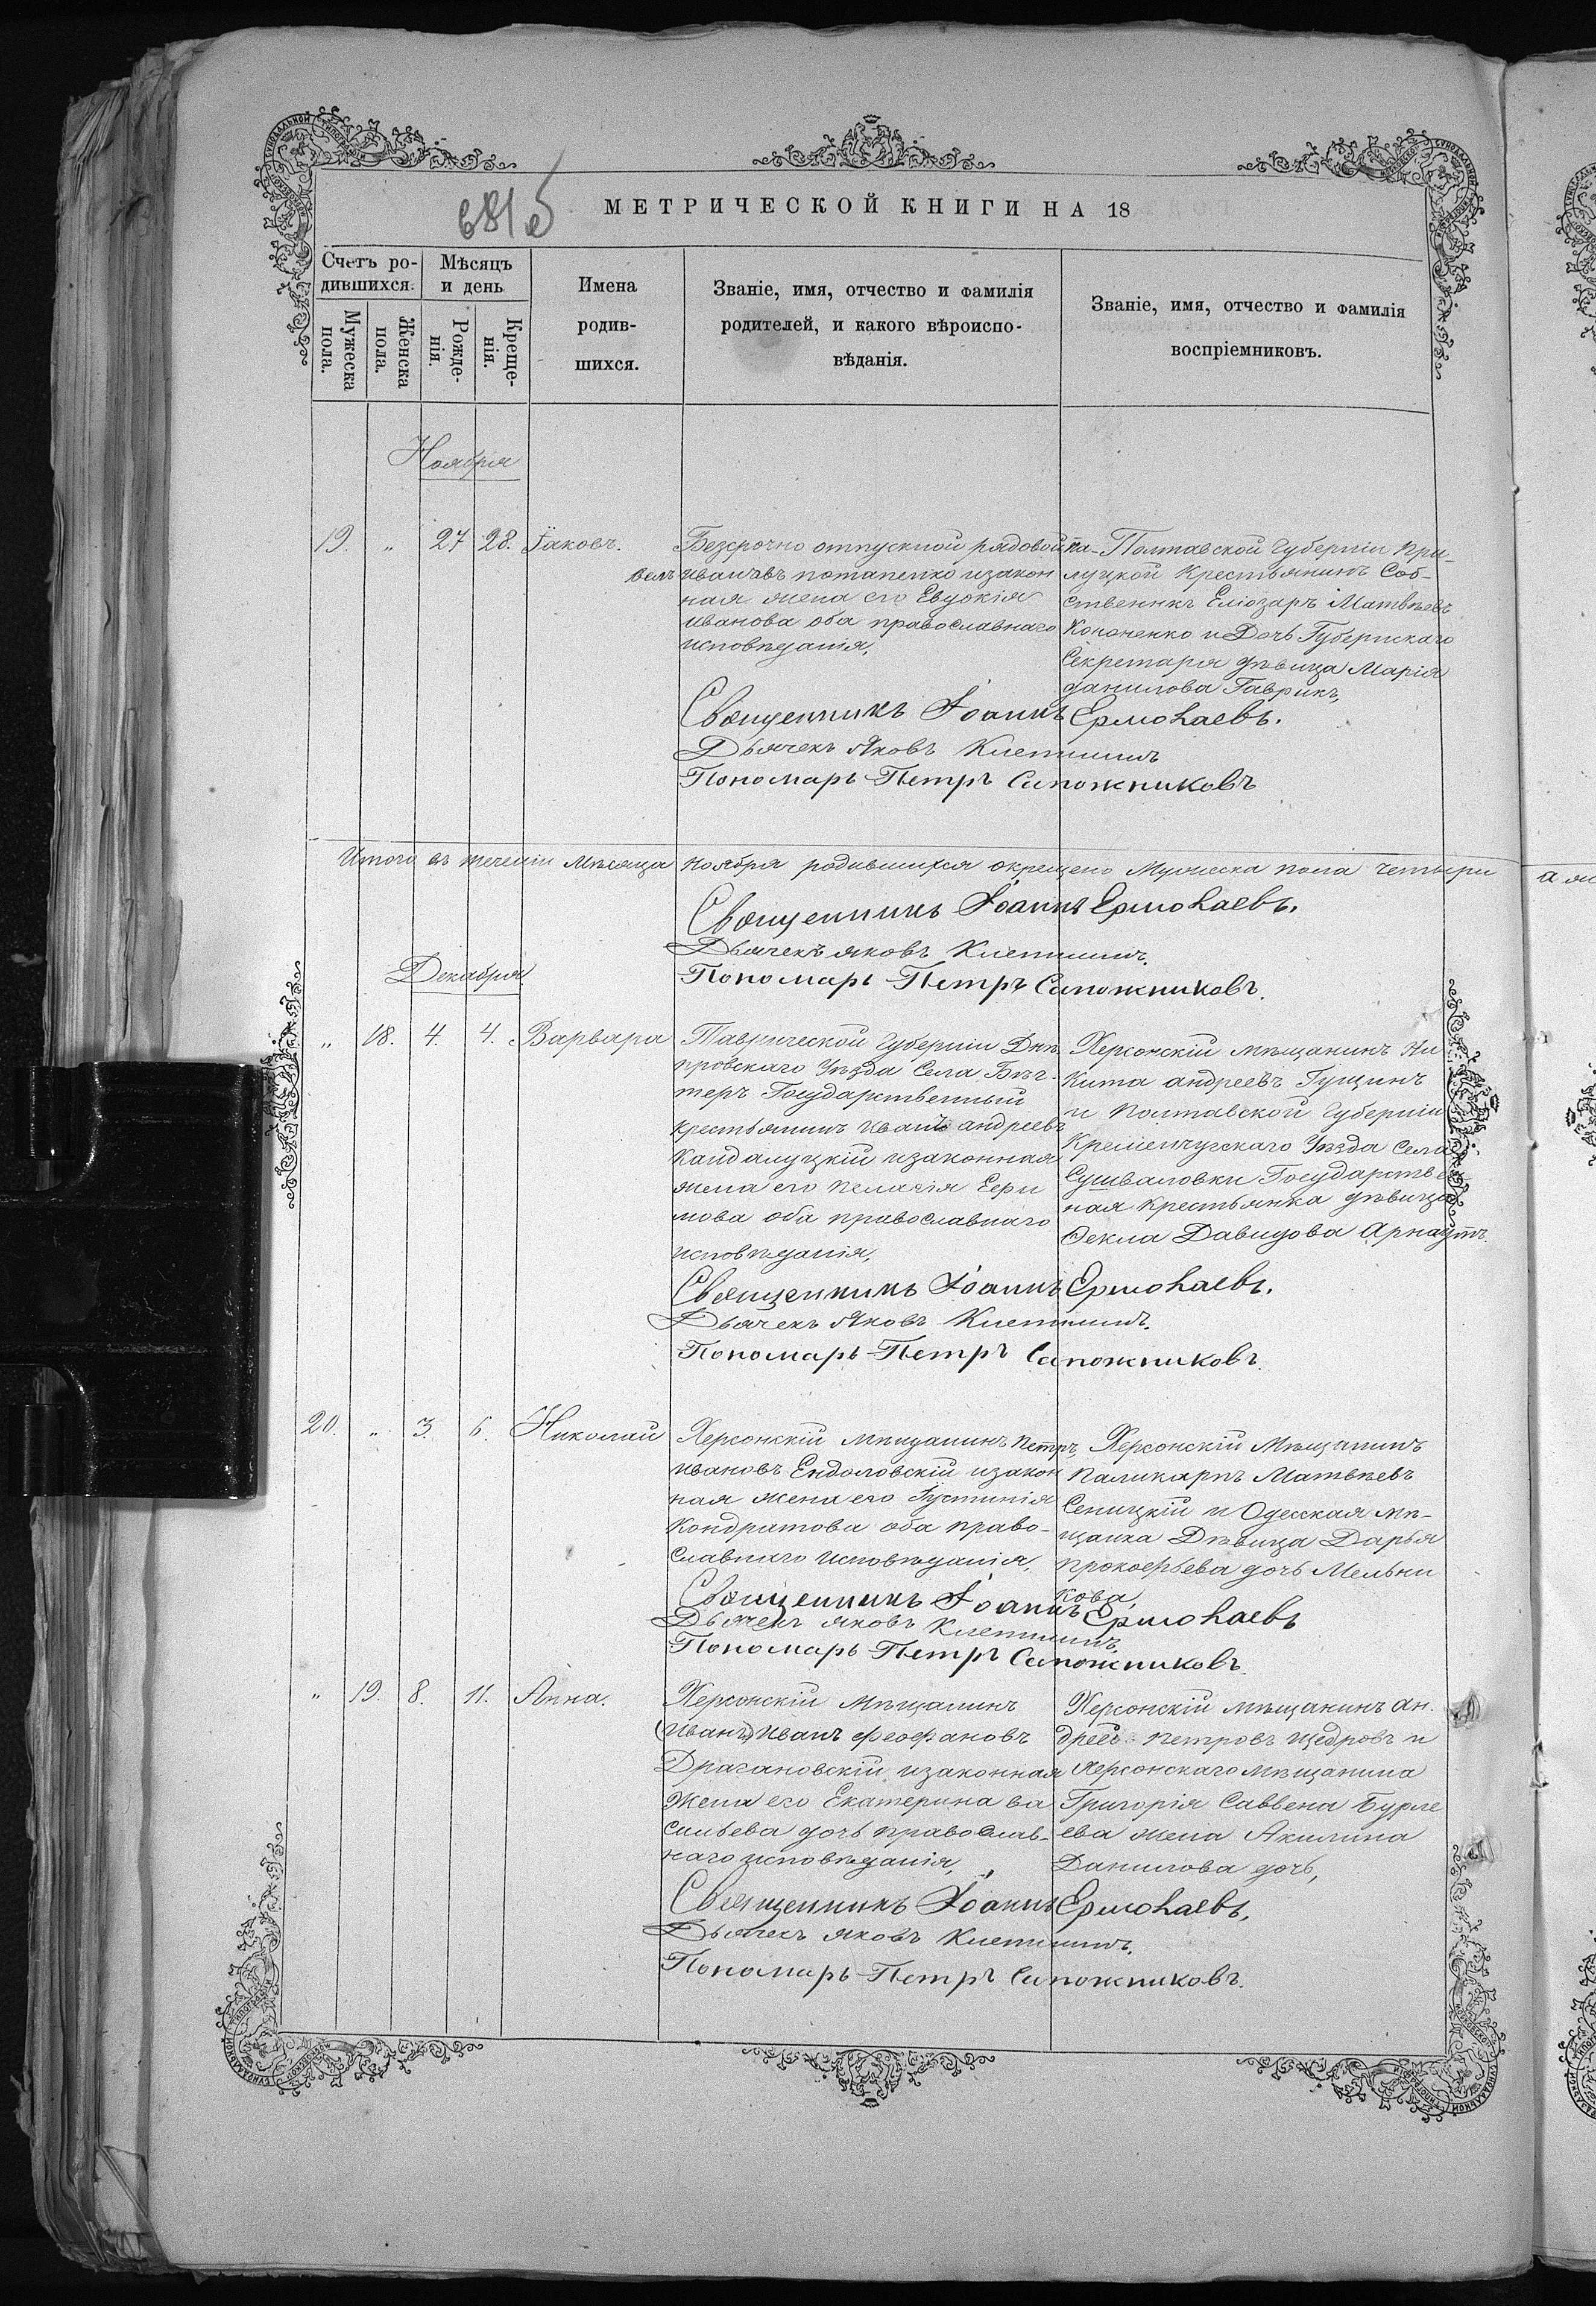 681об
МЕТРИЧЕСКОЙ КНИГИ НА 18
Счетъ ро-
дившихся.
Мужеска
пола.
Женска
пола.
Мѣсяцъ
и день
Рожде-
нія.
Креще-
нія.
Имена
родив-
шихся.
Званіе, имя, отчество и фамилія
родителей, и какого вѣроиспо-
вѣданія.
Званіе, имя, отчество и фамилія
воспріемниковъ.
Ноября
19. " 27 28. Іаковъ.
Безсрочно отпускной рядовой Па-
велъ Ивановъ Потапенко изакон
ная жена его Евдокія
Иванова оба православнаго
исповѣданія,
Полтавской Губерніи При-
луцкой Крестьянинъ Соб-
ственикъ Еліозаръ Матвѣевъ
Кононенко и Дочь Губернскаго
Секретаря дѣвица Марія
Данилова Гаврикъ,
Священникъ Іоаннъ Ермолаевъ.
Дьячекъ Яковъ
Пономарь Петръ Сапожниковъ
Итого въ теченіи Мѣсяца Ноября родившихся окрещено Мужеска пола четыри
Священникъ Іоаннъ Ермолаевъ.
Дьячекъ Яковъ
Пономарь Петръ Сапожниковъ.
Декабря
" 18. 4. 4. Варвара
Таврической Губерніи Днѣ
провскаго Уѣзда Села Бѣх-
теръ Государственный
крестьянинъ Иванъ Андреевъ
Кандалуцкій изаконная
жена его Пелагія Ефи
мова оба православнаго
исповѣданія,
Херсонскій мѣщанинъ Ни
кита Андреевъ Гущинъ
и Полтавской Губерніи
Кременчугскаго Уѣзда Села
Государстве
ная Крестьянка дѣвица
Ѳекла Давидова Арнаутъ.
Священникъ Іоаннъ Ермолаевъ.
Дьячекъ Яковъ
Пономарь Петръ Сапожниковъ.
20. " 3. 6. Николай
Херсонскій мѣщанинъ Петръ
Ивановъ Ендоловскій изакон
ная жена его Іустинія
Кондратова оба право-
славнаго исповѣданія,
Херсонскій Мѣщанинъ
Паликарпъ Матвѣевъ
Сеницкій и Одесская мѣ-
щанка Дѣвица Дарья
Прокофьева дочь Мельни
кова,
Священникъ Іоаннъ Ермолаевъ
Дьячекъ Яковъ
Пономарь Петръ Сапожниковъ.
" 19. 8. 11. Анна.
Херсонскій мѣщанинъ
(Иванъ) Иванъ Феофановъ
Драгановскій изаконная
жена его Екатерина Ва
сильева дочь православ-
наго исповѣданія,
Херсонскій мѣщанинъ Ан.
дрей Петровъ Щедровъ и
Херсонскаго мѣщанина
Григорія Саввена Бурле
ева жена Акилина
Данилова дочь,
Священникъ Іоаннъ Ермолаевъ,
Дьячекъ Яковъ
Пономарь Петръ Сапожниковъ.